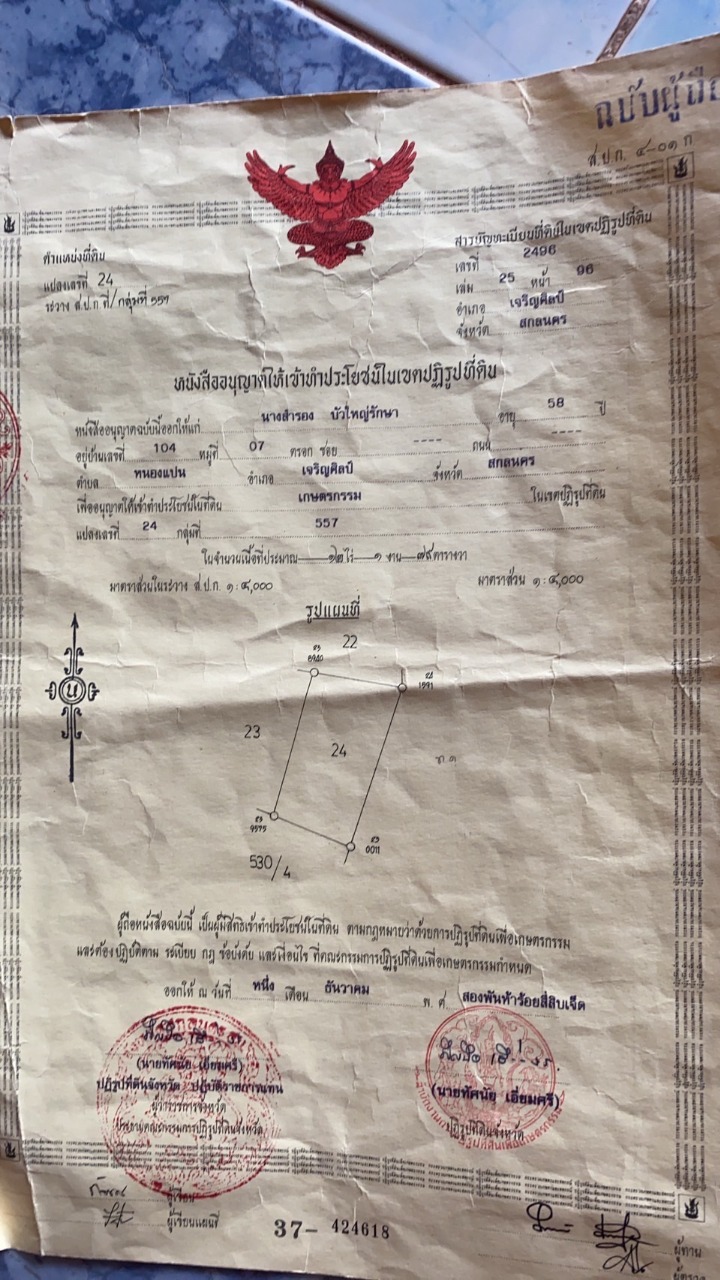 ฉบับผู้ถือ
ส.ป.ก. ๔-๐๑ ก
ตำแหน่งที่ดิน
แปลงเลขที่ 24
ระวาง ส.ป.ก.ที่/กลุ่มที่ ๕๕๗
สารบัญทะเบียนที่ดินในเขตปฏิรูปที่ดิน
เลขที่ 2496
เล่ม 25 หน้า 96
อำเภอ เจริญศิลป์
จังหวัด สกลนคร
หนังสืออนุญาตให้เข้าทำประโยชน์ในเขตปฏิรูปที่ดิน
หนังสืออนุญาตฉบับนี้ออกให้แก่ นางสำรอง บัวใหญ่รักษา อายุ 58 ปี
อยู่บ้านเลขที่ 104 หมู่ที่ 07 ตรอก ซอย ---- ถนน ----
ตำบล หนองแปน อำเภอ เจริญศิลป์ จังหวัด สกลนคร
เพื่ออนุญาตให้เข้าทำประโยชน์ในที่ดิน เกษตรกรรม ในเขตปฏิรูปที่ดิน
แปลงเลขที่ 24 กลุ่มที่ 557
ในจำนวนเนื้อที่ประมาณ ๑๒ ไร่ ๑ งาน ๗๕ ตารางวา
มาตราส่วนในระวาง ส.ป.ก. ๑:๔,๐๐๐ มาตราส่วน ๑:๔,๐๐๐
รูปแผนที่
22
23
24
ท ๑
530/4
น
ผู้ถือหนังสือฉบับนี้ เป็นผู้มีสิทธิเข้าทำประโยชน์ในที่ดิน ตามกฎหมายว่าด้วยการปฏิรูปที่ดินเพื่อเกษตรกรรม
และต้องปฏิบัติตาม ระเบียบ กฎ ข้อบังคับ และเงื่อนไข ที่คณะกรรมการปฏิรูปที่ดินเพื่อเกษตรกรรมกำหนด
ออกให้ ณ วันที่ หนึ่ง เดือน ธันวาคม พ.ศ. สองพันห้าร้อยสี่สิบเจ็ด
(นายทัศนัย เอี่ยมศรี)
ปฏิรูปที่ดินจังหวัด ปฏิบัติราชการแทน
ผู้ว่าราชการจังหวัด
ประธานคณะกรรมการปฏิรูปที่ดินจังหวัด
(นายทัศนัย เอี่ยมศรี)
ปฏิรูปที่ดินจังหวัด
ผู้เขียน
ผู้เขียนแผนที่
37- 424618
ผู้ทาน